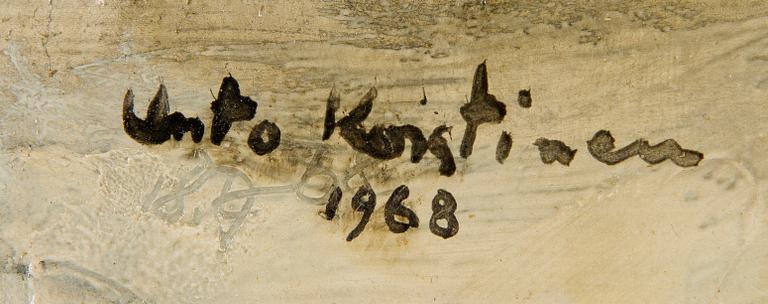 Unto Koistinen
1968